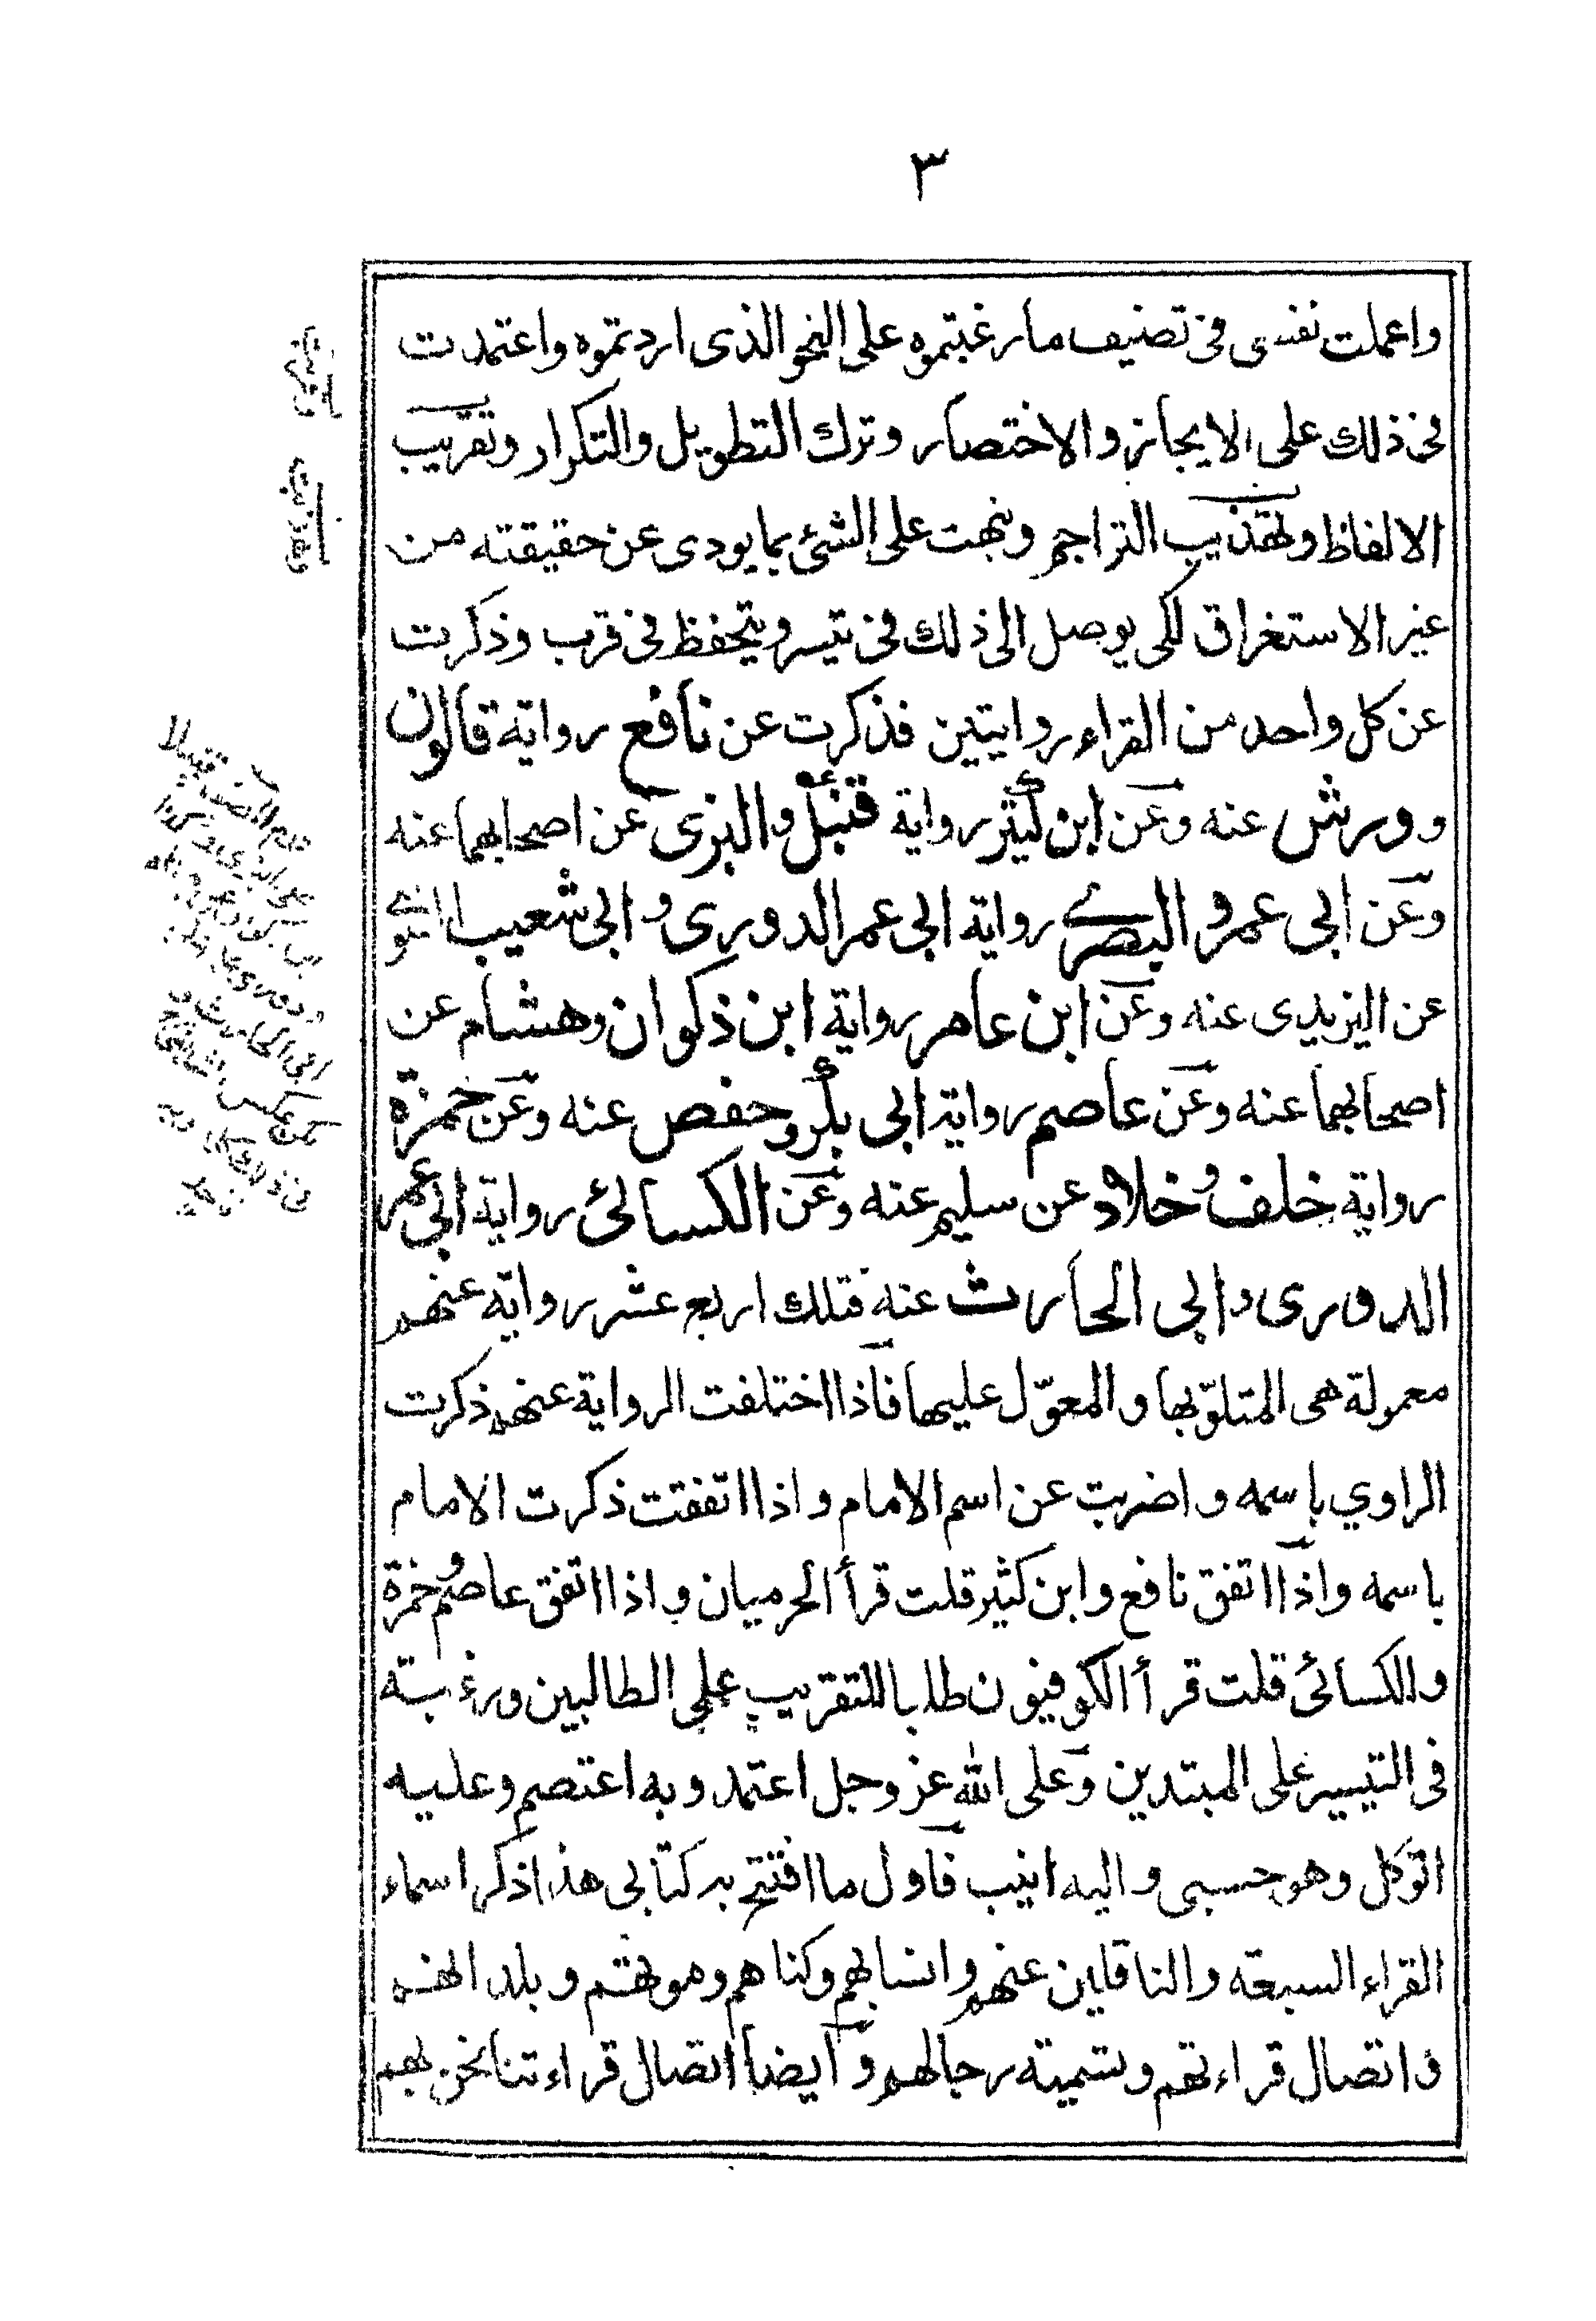 ٣
واعملت نفسى فى تصنيف ما رغبتموه على النحو الذى اردتموه واعتمدت
فى ذلك على الايجاز والاختصار وترك التطويل والتكرار وتقريب
الالفاظ وتهذيب التراجم ونبهت على الشئ بما يودى عن حقيقته من
غير الاستغراق لكى يوصل الى ذلك فى يتيسر ويتحفظ فى قرب وذكرت
عن كل واحد من القراء روايتين فذكرت عن نافع رواية قالون
وورش عنه وعن ابن كثير رواية قنبل والبزى عن اصحابهما عنه
وعن ابى عمرو البصرى رواية ابى عمر الدورى وابى شعيب السوسى
عن اليزيدى عنه وعن ابن عامر رواية ابن ذكوان وهشام عن
اصحابهما عنه وعن عاصم رواية ابى بكر وحفص عنه وعن حمزة
رواية خلف وخلاد عن سليم عنه وعن الكسائى رواية ابى عمر
الدورى وابى الحارث عنه فتلك اربع عشر رواية عنهم
معمولة هى المتلوّ بها والمعوّل عليها فاذا اختلفت الرواية عنهم ذكرت
الراوي باسمه واضربت عن اسم الامام واذا اتفقت ذكرت الامام
باسمه واذا اتفق نافع وابن كثير قلت قرأ الحرميان واذا اتفق عاصم وحمزة
والكسائى قلت قرأ الكوفيون طلبا للتقريب على الطالبين ورغبة
فى التيسير على المبتدين وعلى الله عز وجل اعتمد وبه اعتصم وعليه
اتوكل وهو حسبى واليه انيب فاول ما افتتح به كتابى هذا ذكر اسماء
القراء السبعة والناقلين عنهم وانسابهم وكناهم وموتهم وبلدانهم
واتصال قراءتهم وتسمية رجالهم وايضا اتصال قراءتنا نحن بهم